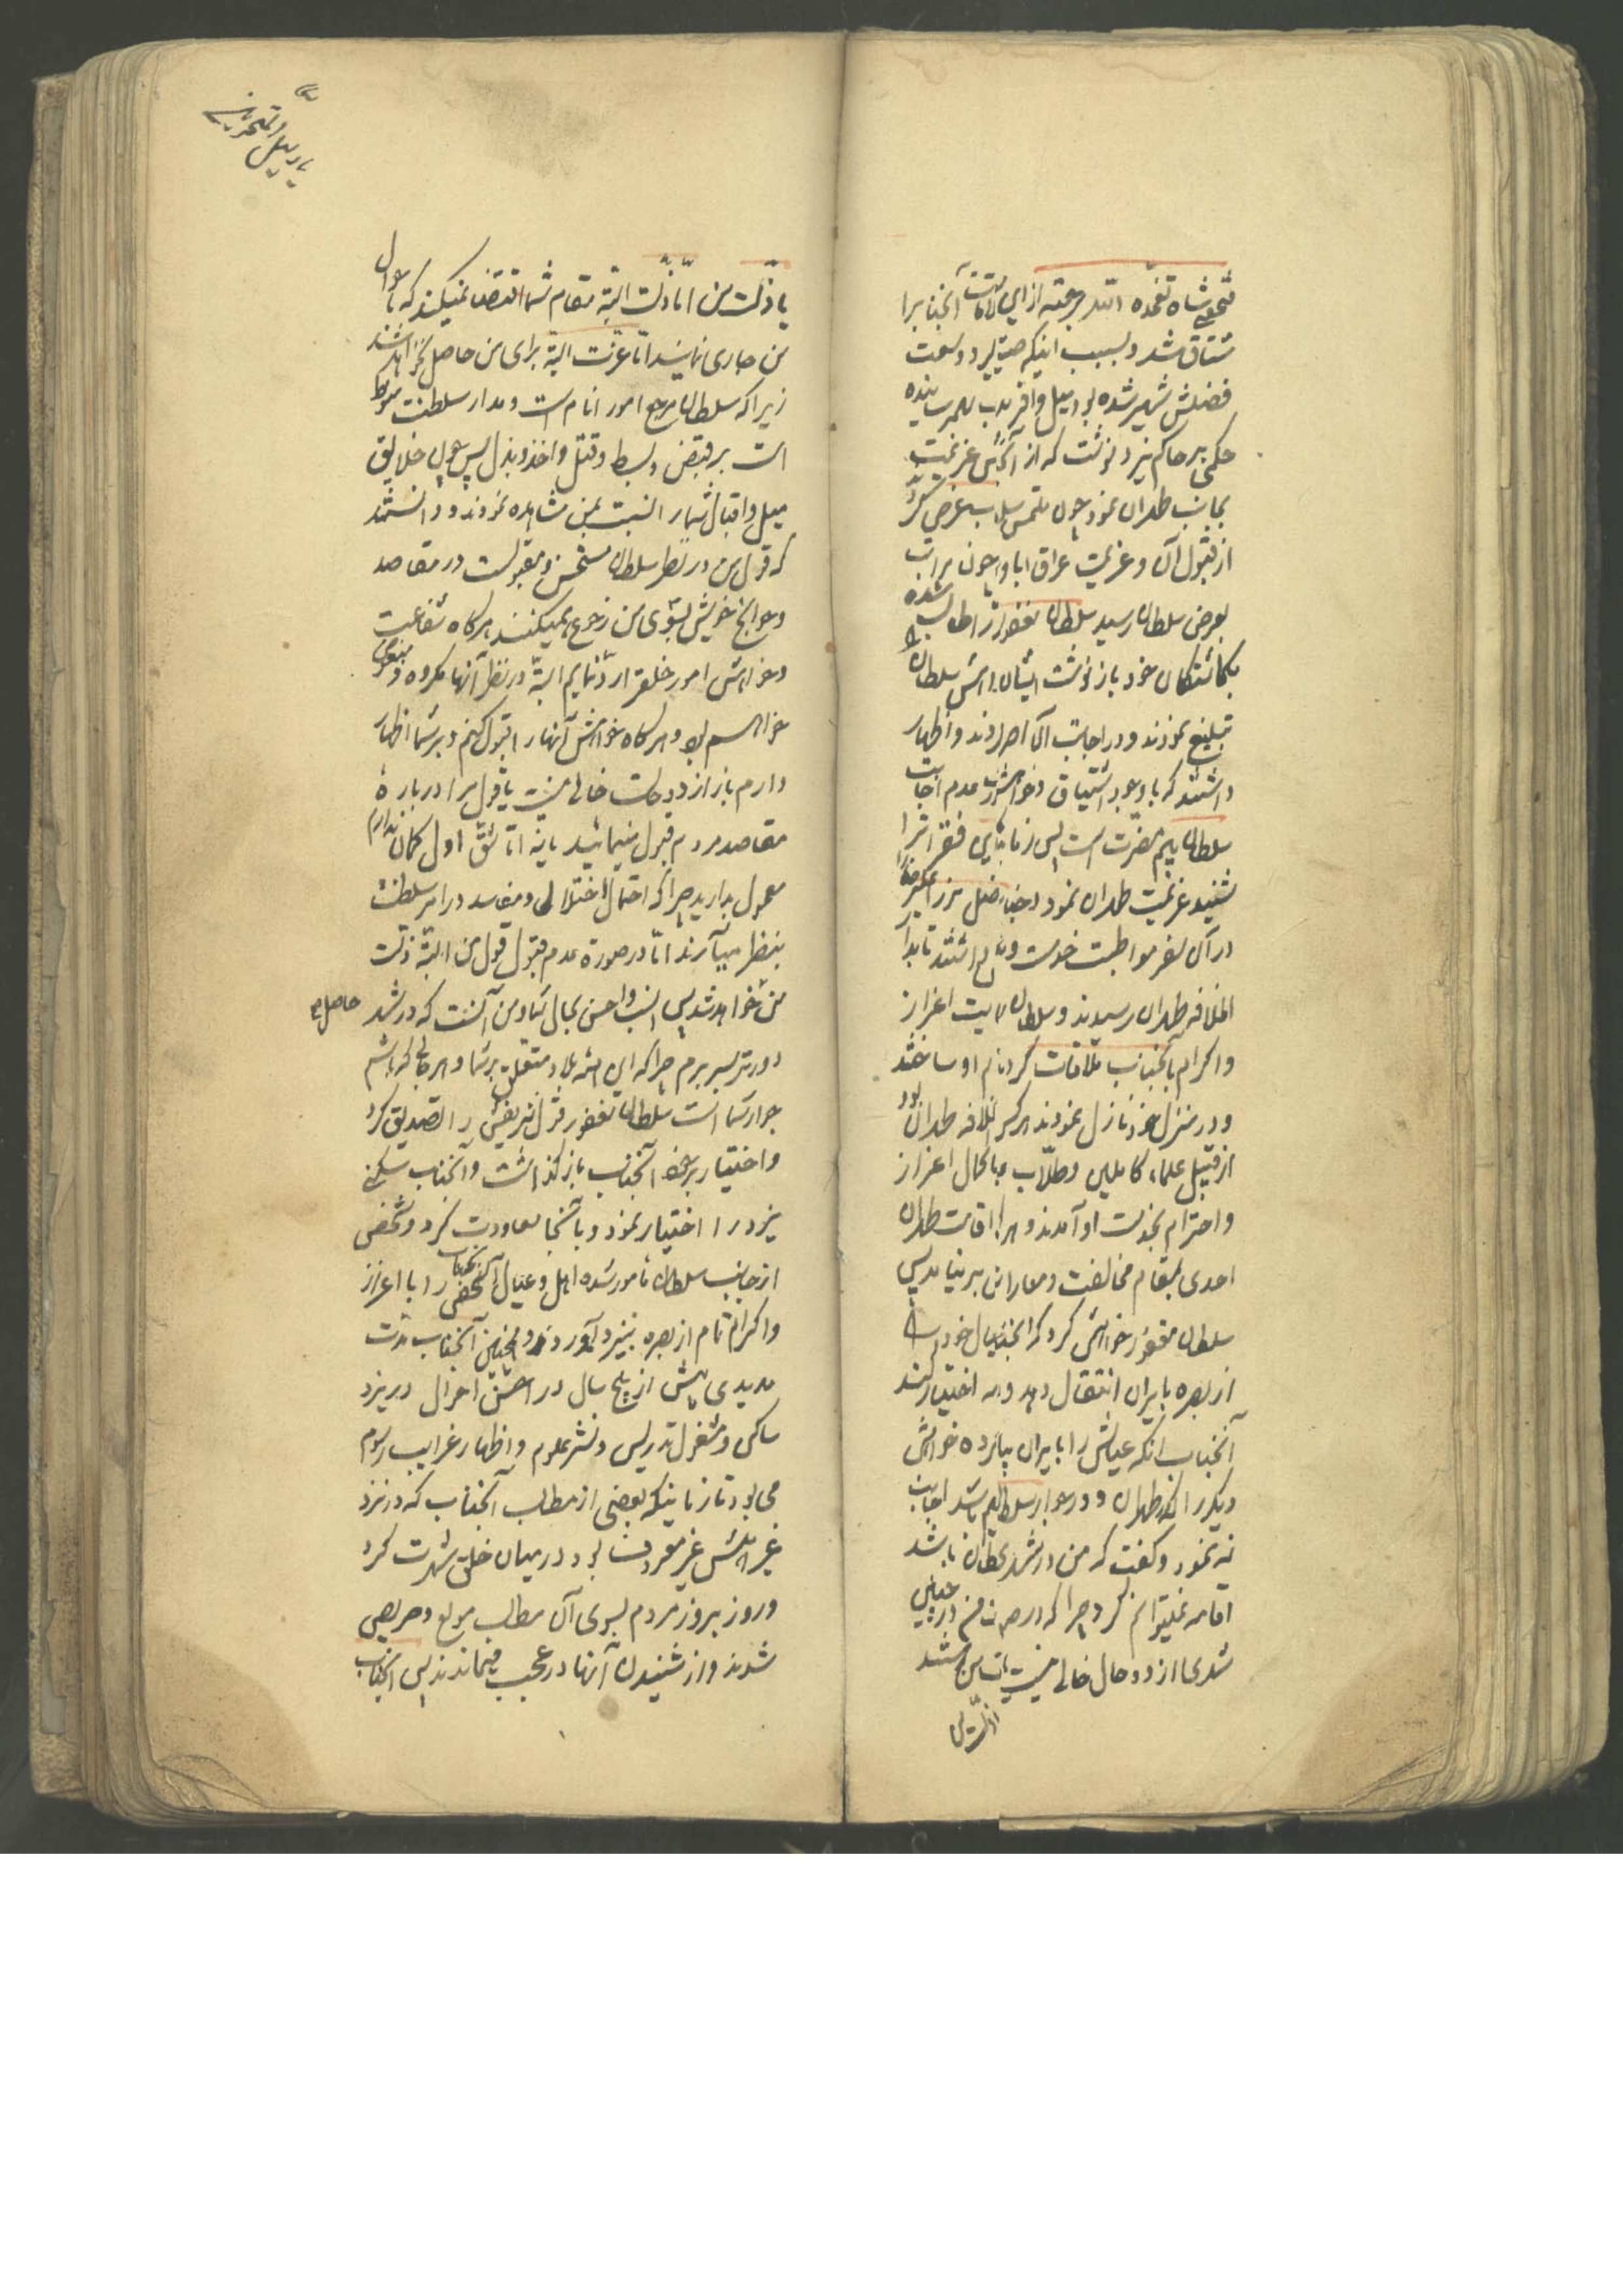 فتحعلی شاه تغمده الله برحمته از این ملاقات آنجناب را
مشتاق شد و بسبب اینکه صیت و سعت
فضلش شهیر شده بود میل وافر بهم رسانیده
حکمی بر حاکم یزد نوشت که از آنکس عزیمت
بجانب طهران نمود چون ملتمس بعرض
از قبول آن و عزیمت عراق ابا و چون مراتب
بعرض سلطان رسید سلطان مغفور از شده
بگماشتگان خود باز نوشت ایشان سلطان را
تبلیغ نمودند و در اجابت آن اصرار و اظهار
داشتند که با وجود اشتیاق و خواهش عدم اجابت
سلطان بیم مضرت است پس زمانیکه این فقرات را
شنید عزیمت طهران نمود و جناب
در آن سفر مواظبت خدمت داشتند تا بدار
الخلافه طهران رسیدند و سلطان اعزاز
و اکرام بآنجناب ملاقات کردند او ساختند
و در منزل خود نازل نمودند هر که در دار الخلافه طهران بود
از قبیل علماء کاملین و طلاب با کمال اعزاز
و احترام بخدمت او آمدند و اقامت طهران
احدی بمقام مخالفت و معارضه بر نیامد پس
سلطان مغفور خواهش کرد که آنجناب عیال خود را
از بصره بایران انتقال دهد و اختیار کند
آنجناب اینکه عیالش را بایران بیاورد خواهش
دیگر را که در طهران و در جوار سلطان باشد اجابت
نه نمود و گفت که من در شهریکه سلطان باشد
اقامه نمیتوانم کرد چرا که در صورت در چنین
شهری از دو حال خالی نیست یا عزت من باشد
یا ذلت من اما ذلت البته مقام شما اقتضا نمیکند که با احوال
من جاری نمائید اما عزت البته برای من حاصل نخواهد شد
زیرا که سلطان مرجع امور انام است و مدار سلطنت منوط
است بر قبض و بسط و قتل و اخذ و بذل پس چون خلایق
میل و اقبال شما را نسبت بمن مشاهده نمودند و دانستند
که قول من در نظر سلطان مستحسن و مقبولست در مقاصد
و حوایج خویش بسوی من رجوع میکنند هرگاه شفاعت
و خواهش امور خلق را رد نمایم البته در نظر آنها مکروه و مبغوض
خواهم بود و هر گاه خواهش آنها را قبول کنم و بر شما اظهار
دارم باز از دو حالت خالی نیست یا قول مرا درباره
مقاصد مردم قبول مینمائید یا نه اما شق اول گمان ندارم
معمول بدارید چرا که احتمال اختلال و مفاسد در امر سلطنت
بنظر میآرند اما در صورة عدم قبول قول من البته ذلت
من خواهد شد پس انسب و احسن بحال شما و من آنست که در شهر حاصل
دورتر بسر برم چرا که این همه بلاد متعلق بر شما و هر جائی که باشم
جوار شما است سلطان مغفور قول شریفش را تصدیق کرد
و اختیار بر خود آنجناب باز گذاشت و آنجناب سکنی
یزد را اختیار نمود و بآنجا معاودت کرد و شخصی
از جانب سلطان مامور شده اهل و عیال آنجناب را با اعزاز
و اکرام تمام از بصره بیزد آوردند و همچنین آنجناب مدت
مدیدی پیش از پنج سال در احسن احوال در یزد
ساکن و مشغول تدریس و نشر علوم و اظهار غرایب رسوم
می بود تا زمانیکه بعضی از مطالب آنجناب که در نزد
غیر اهلش غیر معروف بود در میان خلق شهرت کرد
و روز بروز مردم بسوی آن مطالب مولع و حریص
شدند و از شنیدن آنها در عجب میماندند پس آنجناب